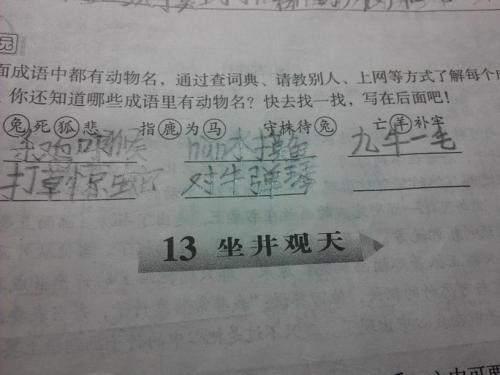 园
面成语中都有动物名，通过查词典、请教别人、上网等方式了解每个
你还知道哪些成语里有动物名？快去找一找，写在后面吧！
兔死狐悲 指鹿为马 守株待兔 亡羊补牢
杀鸡吓猴 hun水摸鱼 九牛一毛
打草惊蛇 对牛弹琴
13 坐井观天